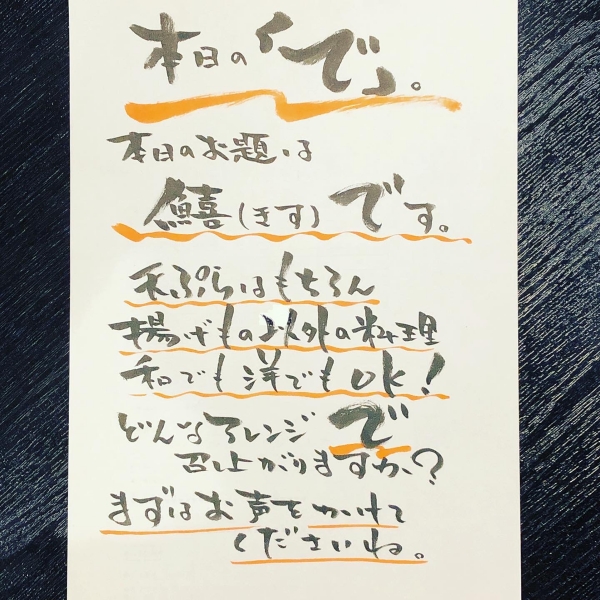 本日の「で」。
本日のお題は
鱚(きす)です。
天ぷらはもちろん
揚げもの以外の料理
和でも洋でもOK!
どんなアレンジで
召し上がりますか?
まずはお声をかけて
くださいね。